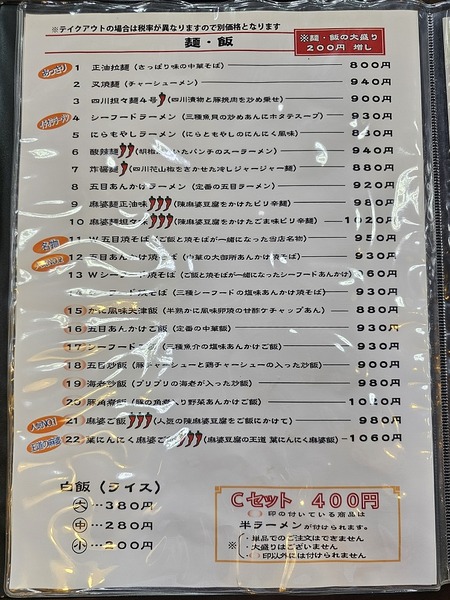 ※テイクアウトの場合は税率が異なりますので別価格となります
麺・飯
※麺・飯の大盛り
200円 増し
あっさり
1 正油拉麺(さっぱり味の中華そば) 800円
2 叉焼麺(チャーシューメン) 940円
3 四川担々麺4号(四川漬物と豚挽肉を炒め乗せ) 900円
4 シーフードラーメン(三種魚貝の炒めあんにホタテスープ) 930円
5 にらもやしラーメン(にらともやしのにんにく風味) 880円
6 酸辣麺(胡椒 いたパンチのスーラーメン) 940円
7 炸醤麺(四川花山椒をきかせた冷しジャージャー麺) 880円
8 五目あんかけラーメン(定番の五目ラーメン) 920円
9 麻婆麺正油味(陳麻婆豆腐をかけたピリ辛麺) 980円
10 麻婆麺坦々 (陳麻婆豆腐をかけたごま味ピリ辛麺) 1020円
名物
11 W五目焼そば(ご飯と焼そばが一緒になった当店名物) 950円
12 五目あんかけ焼そば(中華の大御所あんかけ焼そば) 930円
13 Wシーフード焼そば(ご飯と焼そばが一緒になったシーフードあんかけ) 960円
焼そば(三種シーフードの塩味あんかけ焼そば) 930円
15 かに風味天津飯(半熟かに風味卵頂の甘酢ケチャップあん) 880円
16 五目あんかけご飯(定番の中華飯) 930円
17 シーフード (三種魚介の塩味あんかけご飯) 930円
18 五目炒飯(豚チャーシューと鶏チャーシューの入った炒飯) 900円
19 海老炒飯(プリプリの海老が入った炒飯) 980円
20 豚角煮飯(豚の角煮入り野菜あんかけご飯) 1020円
人気NO1
21 麻婆ご飯(人気の陳麻婆豆腐をご飯にかけて) 980円
22 葉にんにく麻婆ご (麻婆豆腐の王道 葉にんにく麻婆飯) 1060円
白飯(ライス)
大…380円
中…280円
小…200円
Cセット 400円
印の付いている商品は
半ラーメンが付けられます。
※
・単品でのご注文はできません
・大盛りはございません
・ 印以外には付けられません